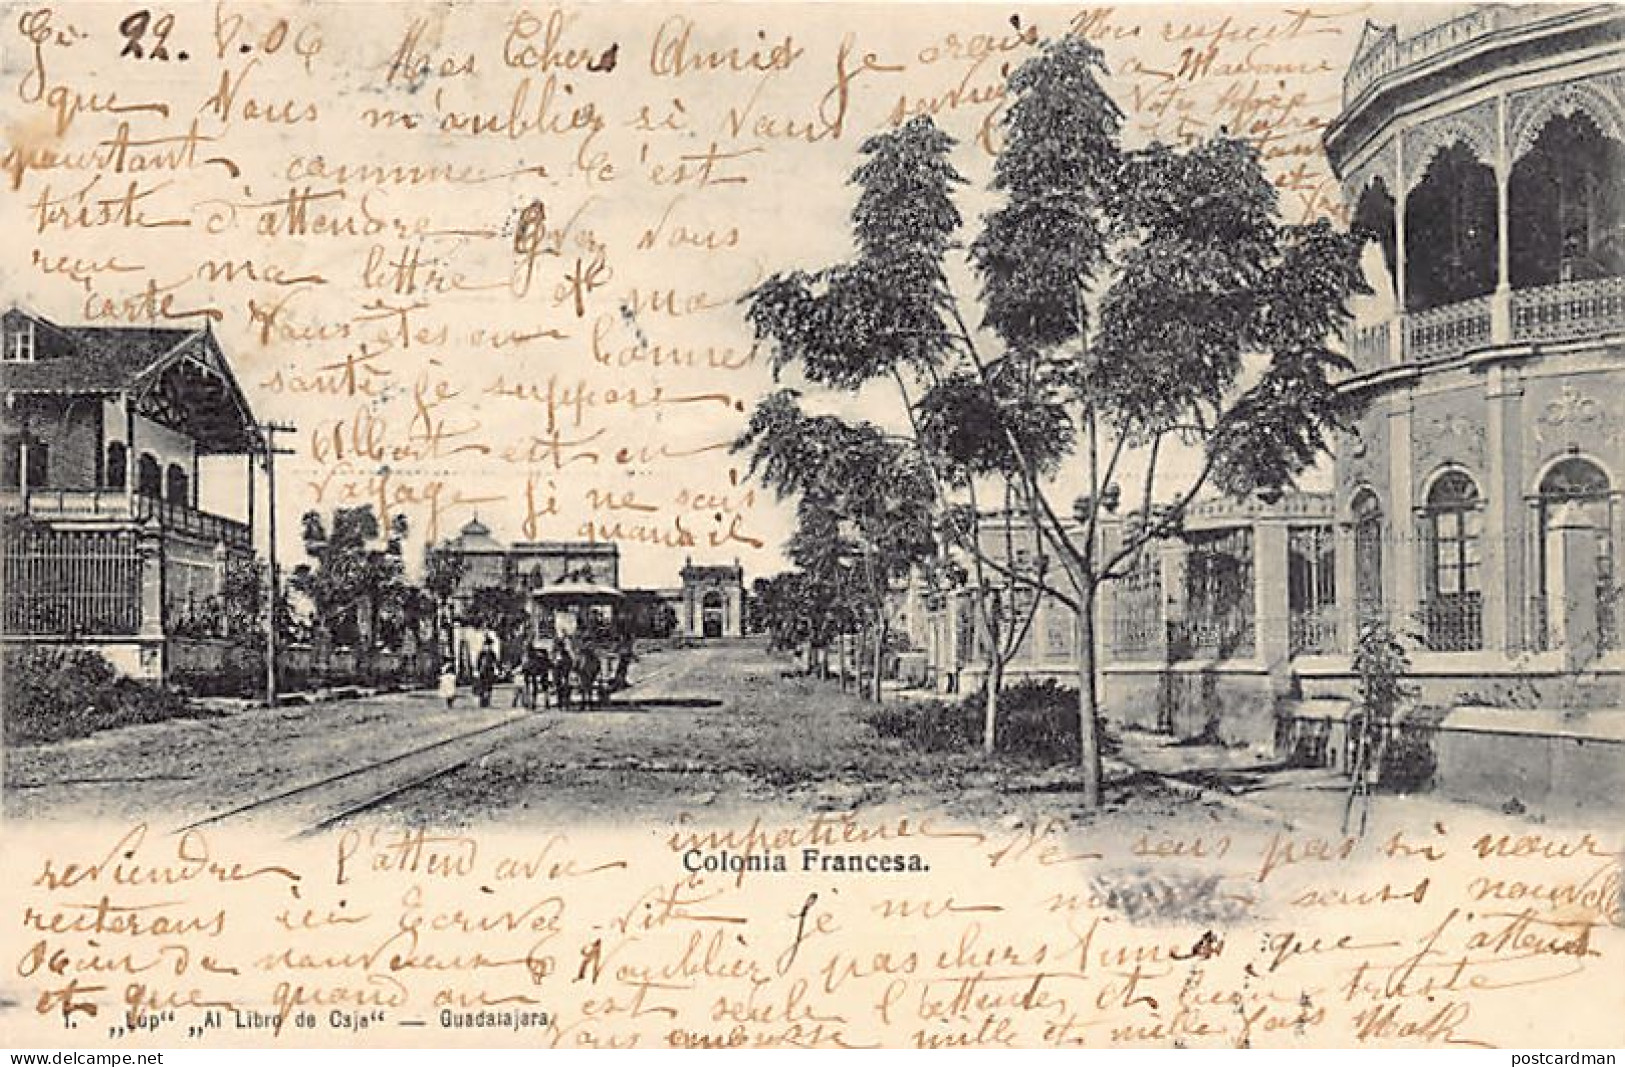 22. 8.06 Mes Chers Amis je crois
que Vous m'oubliez si Vous saviez
pourtant comme c'est
triste d'attendre Avez Vous
reçue ma lettre et ma
carte Vous êtes en bonnes
santé je suppose.
Albert est en
Voyage je ne sais
quand il
Mon respect
a Madame
Votre Mère
et Votre
tante
et
reviendra l'attend avec impatience Ne sais pas si nous
resterons ici Ecrivez vite je me sans nouvelle
Rien de nouveaux N'oubliez pas chers Amies que j'attend
et que quand on est seule l'attente et bien triste
Vous embrasse mille et mille fois
Colonia Francesa.
1. „Lup“ „Al Libro de Caja“ — Guadalajara.
postcardman